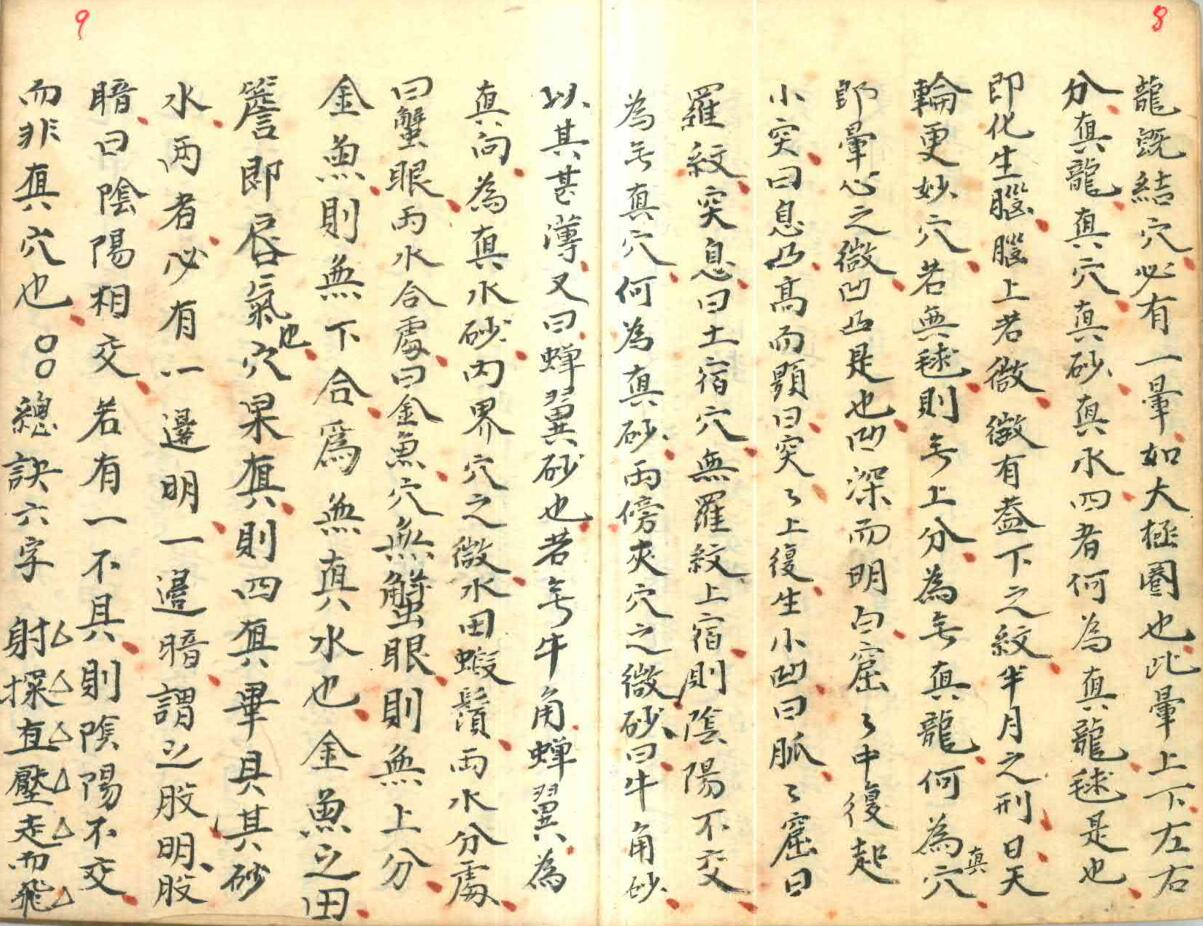 8
龍既結穴必有一暈如大極圈也此暈上下左右
分真龍真穴真砂真水四者何為真龍毬是也
即化生腦腦上若微微有蓋下之紋半月之刑曰天
輪更妙穴若無毬則無上分為無真龍何為真穴
即暈心之微凹凸是也凹深而明曰窟々中復起
小突曰息凸高而顯曰突々上復生小凹曰脈々窟曰
羅紋突息曰土宿穴無羅紋上宿則陰陽不交
為無真穴何為真砂兩傍夾穴之微砂曰牛角砂
9
以其甚薄又曰蟬翼砂也若無牛角蟬翼為
真向為真水砂內界穴之微水曰蝦鬚兩水分處
曰蟹眼兩水合處曰金魚穴無蟹眼則無上分
金魚則無下合為無真水也金魚之田
簷即唇氣也穴果真則四真畢具其砂
水兩者必有一邊明一邊暗謂之股明股
暗曰陰陽相交若有一不具則陰陽不交
而非真穴也○○總訣六字 射探直壓走而飛